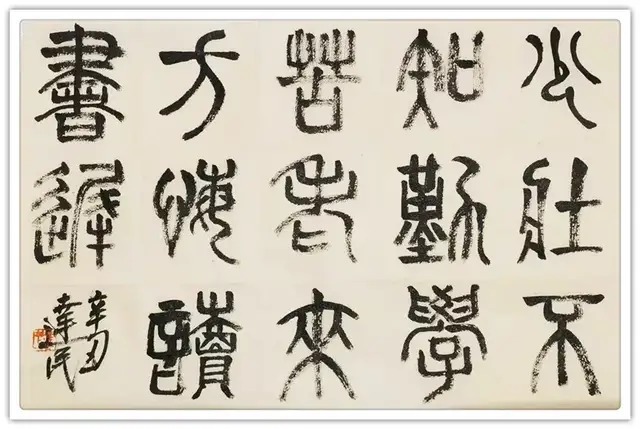 少壯不
知勤學
苦老來
方悔讀
書遲
辛丑